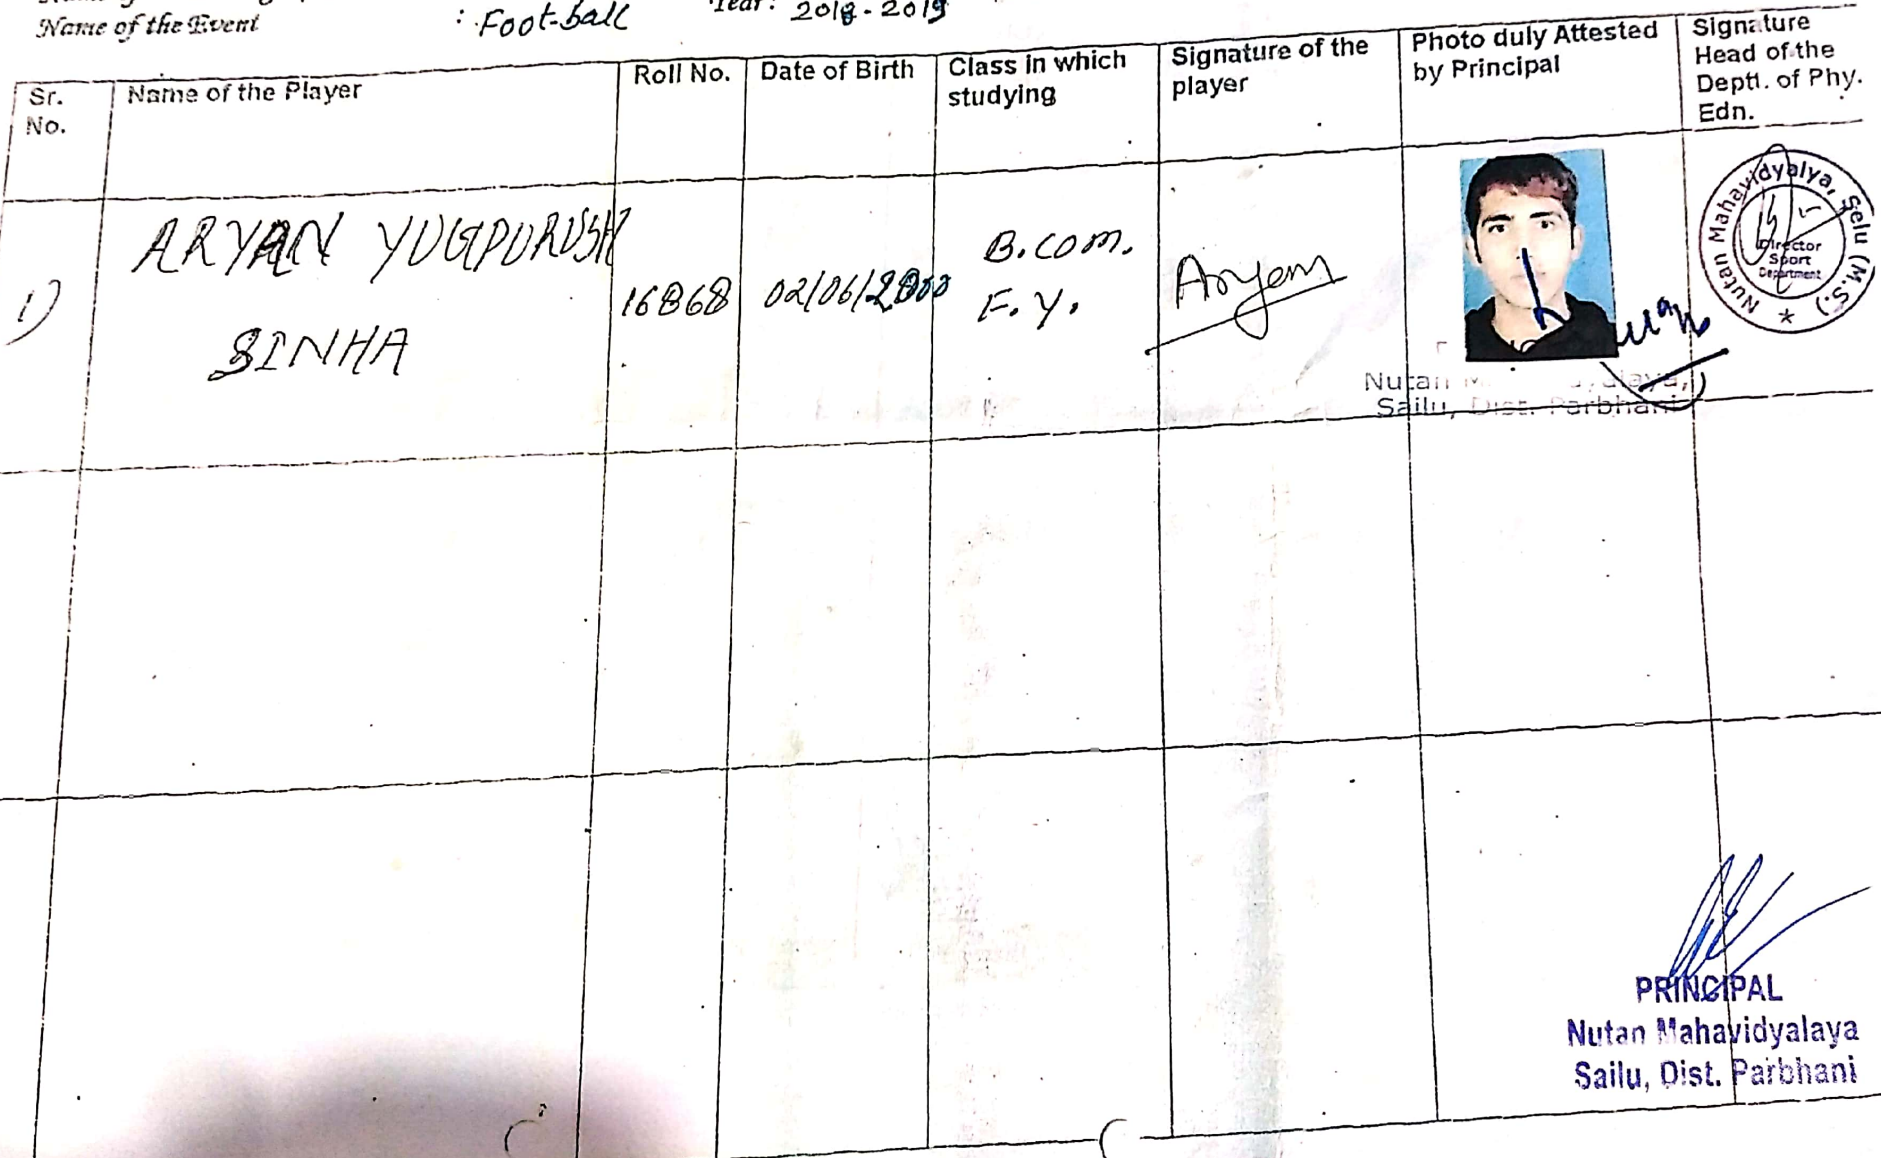 Name of the Event : Foot-ball Year: 2018-2019
Sr. No.
Name of the Player
Roll No.
Date of Birth
Class in which studying
Signature of the player
Photo duly Attested by Principal
Signature Head of the Deptt. of Phy. Edn.
1)
ARYAN YUGPURUSH
SINHA
16868
02/06/2000
B.com.
F.Y.
Aryan
Nutan Mahavidyalya, Selu (M.S.) *
Director
Sport
Department
Nutan
Sailu, Dist. Parbhani
PRINCIPAL
Nutan Mahavidyalaya
Sailu, Dist. Parbhani